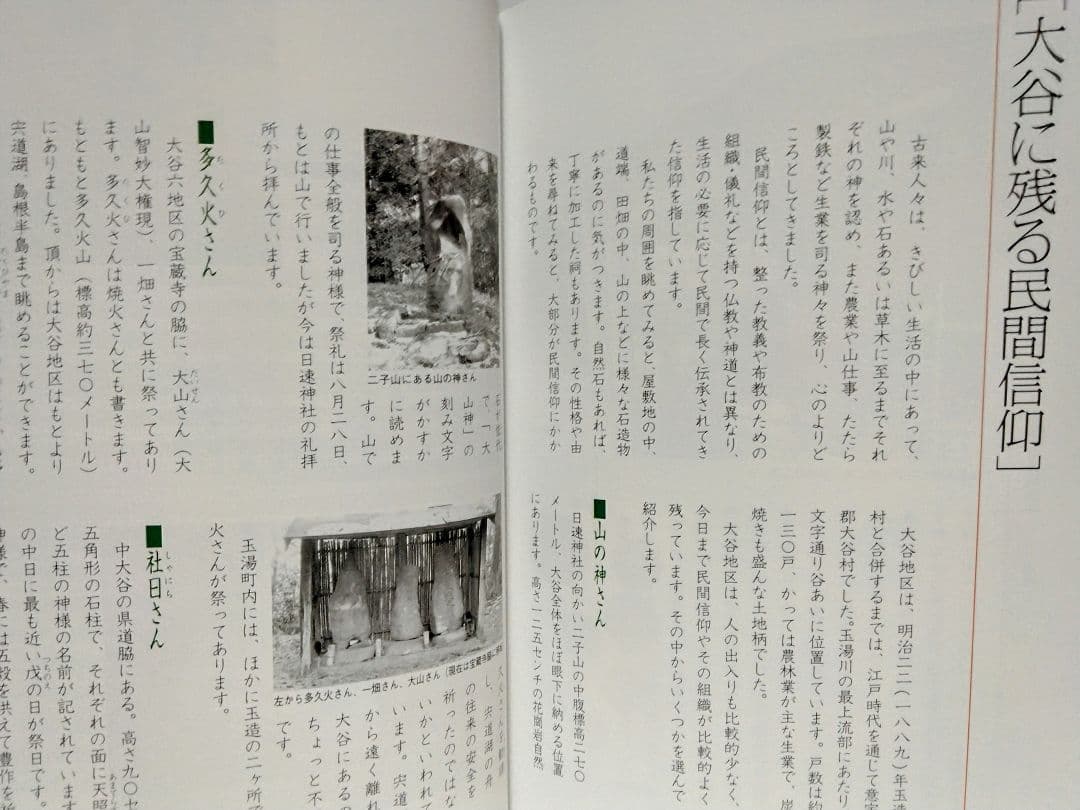 「大谷に残る民間信仰」
古来人々は、きびしい生活の中にあって、
山や川、水や石あるいは草木に至るまでそれ
ぞれの神を認め、また農業や山仕事、たたら
製鉄など生業を司る神々を祭り、心のよりど
ころとしてきました。
民間信仰とは、整った教義や布教のための
組織・儀礼などを持つ仏教や神道とは異なり、
生活の必要に応じて民間で長く伝承されてき
た信仰を指しています。
私たちの周囲を眺めてみると、屋敷地の中、
道端、田畑の中、山の上などに様々な石造物
があるのに気がつきます。自然石もあれば、
丁寧に加工した祠もあります。その性格や由
来を尋ねてみると、大部分が民間信仰にかか
わるものです。
大谷地区は、明治二二（一八八九）年玉
村と合併するまでは、江戸時代を通じて意宇
郡大谷村でした。玉湯川の最上流部にあたり
文字通り谷あいに位置しています。戸数は約
一三〇戸、かっては農林業が主な生業で、炭
焼きも盛んな土地柄でした。
大谷地区は、人の出入りも比較的少なく、
今日まで民間信仰やその組織が比較的よく
残っています。その中からいくつかを選んで
紹介します。
■山の神さん
日速神社の向かい二子山の中腹標高二七〇
メートル、大谷全体をほぼ眼下に納める位置
にあります。高さ一二五センチの花崗岩自然
で、「大
山神」の
刻み文字
がかすか
に読めま
す。山で
二子山にある山の神さん
の仕事全般を司る神様で、祭礼は八月二八日、
もとは山で行いましたが今は日速神社の礼拝
所から拝んでいます。
■多久火さん
たくひ
大谷六地区の宝蔵寺の脇に、大山さん（大
だいせん
山智妙大権現）、一畑さんと共に祭ってあり
ます。多久火さんは焼火さんとも書きます。
たくひ
もともと多久火山（標高約三七〇メートル）
にありました。頂からは大谷地区はもとより
宍道湖、島根半島まで眺めることができます。
左から多久火さん、一畑さん、大山さん（現在は宝蔵寺脇に
し、宍道湖の舟
の往来の安全を
祈ったのではな
いかといわれて
います。宍道
から遠く離れ
大谷にある
ちょっと不
です。
玉湯町内には、ほかに玉造の二ヶ所で
火さんが祭ってあります。
■社日さん
しゃにち
中大谷の県道脇にある。高さ九〇セ
五角形の石柱で、それぞれの面に天照
あまてらす
ど五柱の神様の名前が記されています
の中日に最も近い戊の日が祭日です。
つちのえ
神様で、春には五穀を供えて豊作を